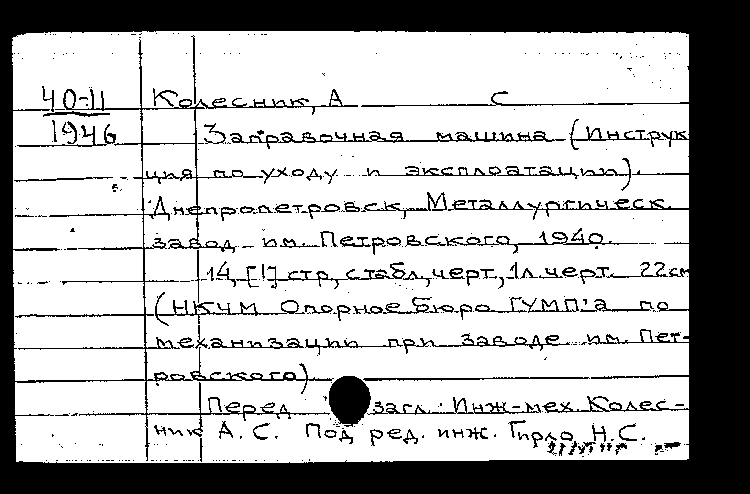 40-11
1946
Колесник, А С
Заправочная машина (Инструк
ция по уходу и эксплоатации).
Днепропетровск, Металлургическ.
завод им. Петровского, 1940.
14, [1] стр, с табл, черт, 1 л. черт. 22см
(НКЧМ Опорное Бюро ГУМП'а по
механизации при заводе им. Пет-
ровского)
Перед загл.: Инж-мех. Колес-
ник А. С. Под ред. инж. Гирло Н.С.